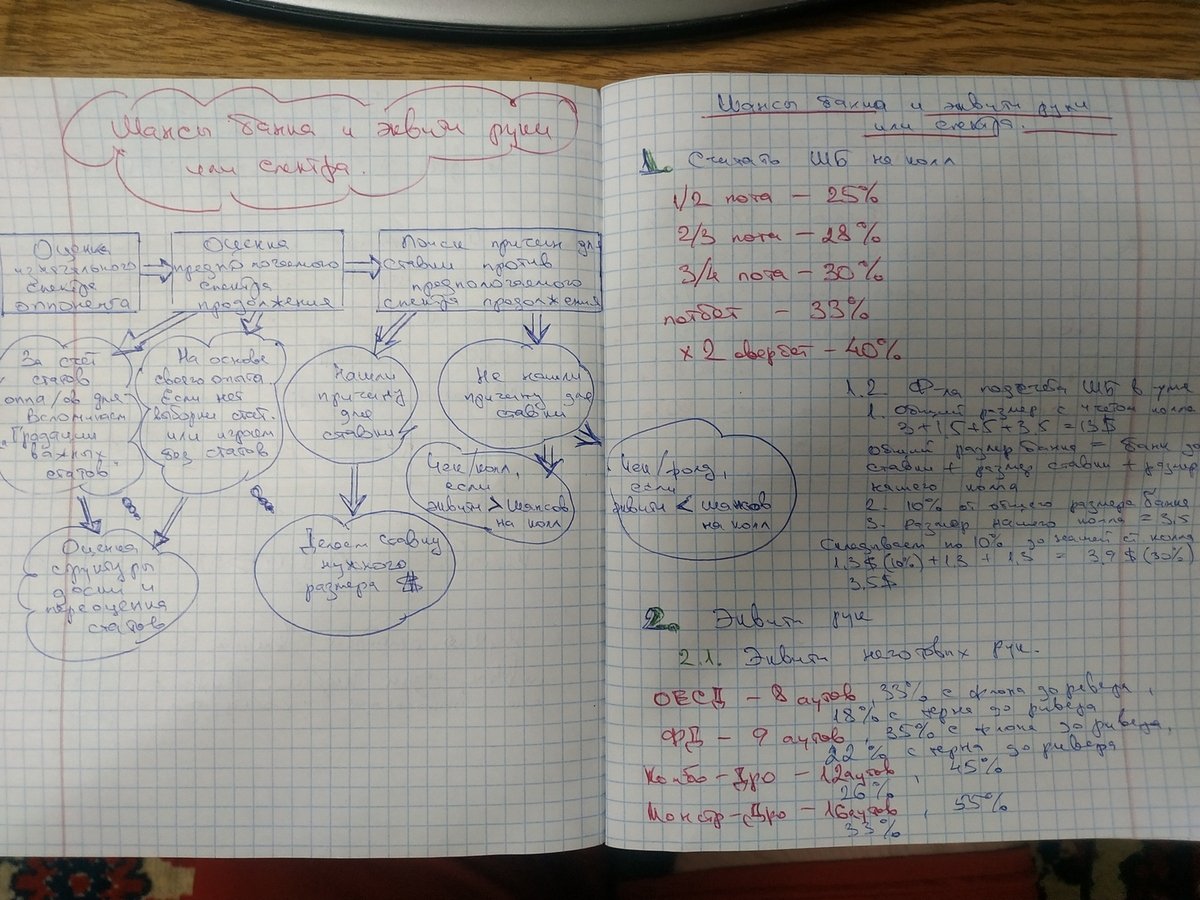 Шансы банка и эквити руки
или спектра.
Оценка
начального
спектра
оппонента
Оценка
предпологаемого
спектра
продолжения
Поиск причин для
ставки против
предпологаемого
спектра продолжения
За счёт
статов
оппа/ов для
Вспоминаем
"Градации
важных
статов"
На основе
своего опыта.
Если нет
выборки стат.
или играем
без статов
Нашли
причину
для
ставки
Не нашли
причину для
ставки
Оценка
структуры
доски и
переоценка
статов
Делаем ставку
нужного
размера $
Чек/колл,
если
эквити > шансов
на колл
Чек/фолд,
если
эквити < шансов
на колл
Шансы банка и эквити руки
или спектра.
1. Считать ШБ на колл
1/2 пота - 25%
2/3 пота - 28%
3/4 пота - 30%
потбет - 33%
x2 овербет - 40%
1.2 Ф-ла подсчёта ШБ в уме
1. Общий размер с учётом колла
3+1,5+5+3,5 = 13$
общий размер банка = банк до
ставки + размер ставки + размер
нашего колла
2. 10% от общего размера банка
3. размер нашего колла = 3,5
Складываем по 10% до нашей ст колла
1,3$(10%) + 1,3 + 1,3 = 3,9$(30%)
3,5$
2. Эквити рук
2.1. Эквити неготовых рук.
ОЕСД - 8 аутов, 33% с флопа до ривера,
18% с терна до ривера
ФД - 9 аутов, 35% с флопа до ривера,
22% с терна до ривера
Комбо-Дро - 12 аутов, 45%
26%
Монстр-Дро - 16 аутов, 55%
33%